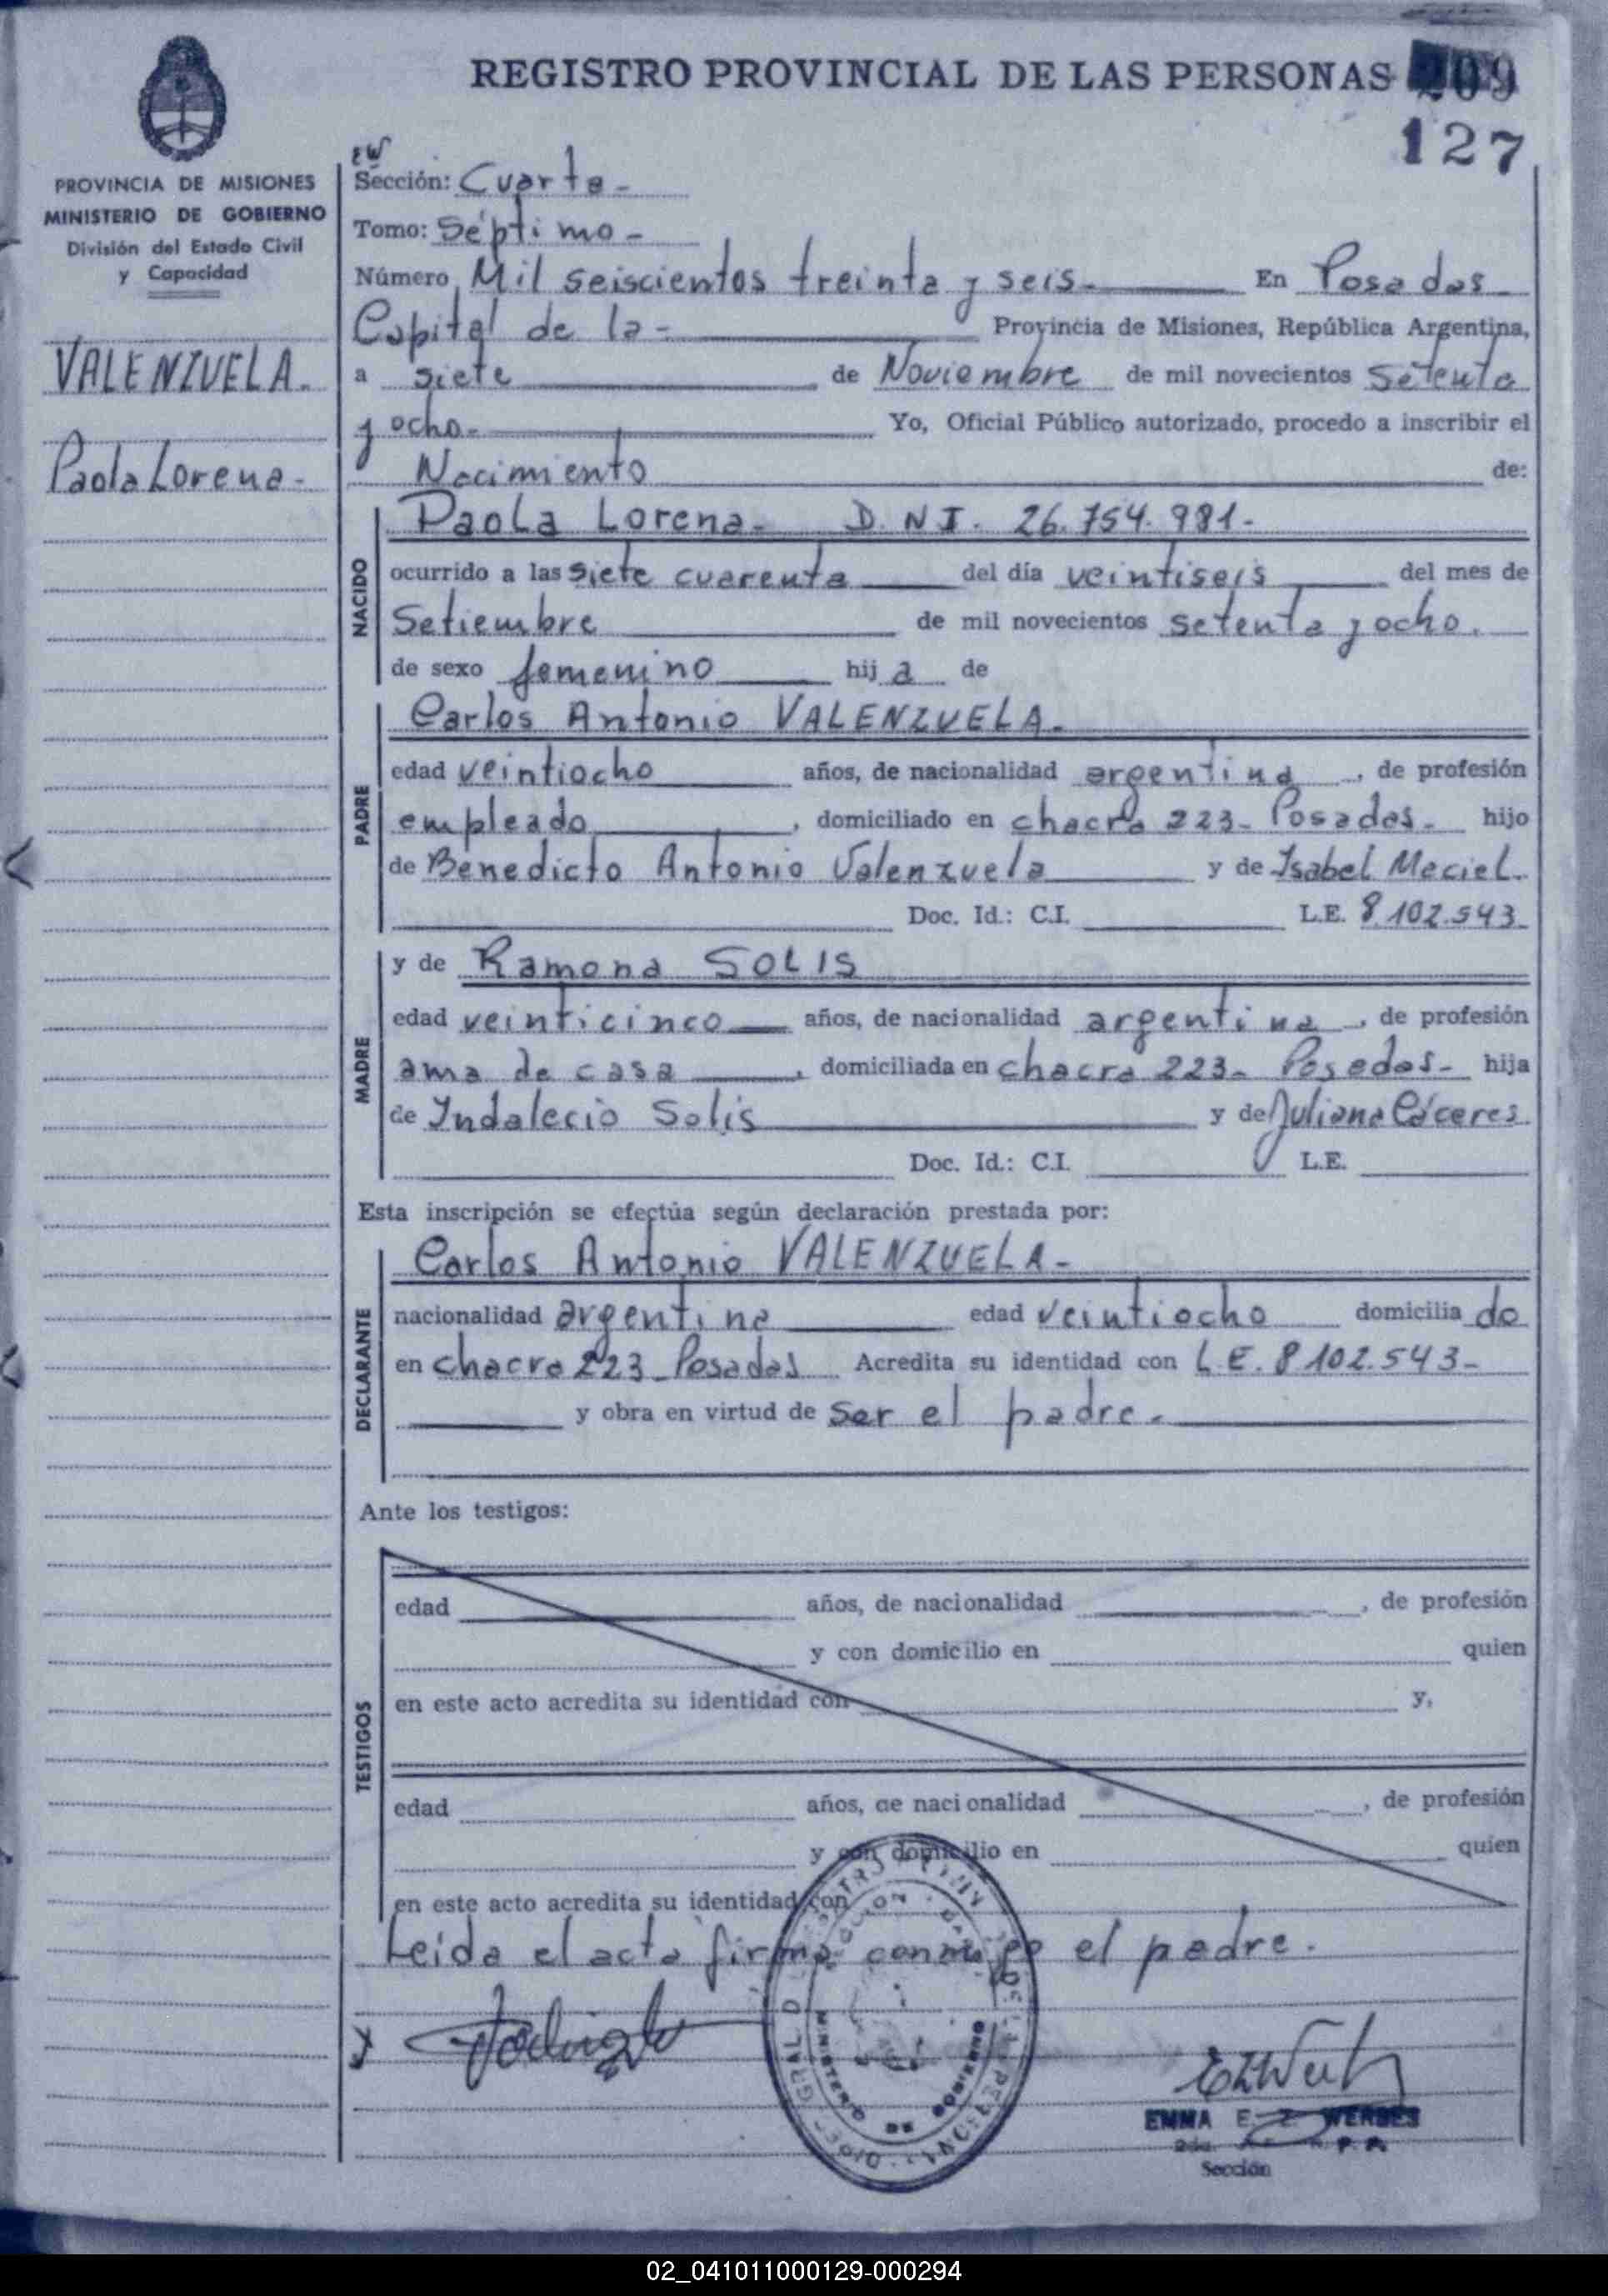 REGISTRO PROVINCIAL DE LAS PERSONAS 209
127
PROVINCIA DE MISIONES
MINISTERIO DE GOBIERNO
División del Estado Civil
y Capacidad
VALENZUELA.
Paola Lorena-
EW
Sección: Cuarta-
Tomo: Séptimo-
Número Mil seiscientos treinta y seis- En Posadas
Capital de la- Provincia de Misiones, República Argentina,
a siete de Noviembre de mil novecientos setenta
y ocho- Yo, Oficial Público autorizado, procedo a inscribir el
Nacimiento de:
NACIDO
Paola Lorena- D.N.I. 26.754.981-
ocurrido a las siete cuarenta del día veintiseis del mes de
Setiembre de mil novecientos setenta y ocho.
de sexo femenino hij a de
PADRE
Carlos Antonio VALENZUELA-
edad veintiocho años, de nacionalidad argentina, de profesión
empleado, domiciliado en chacra 223- Posadas- hijo
de Benedicto Antonio Valenzuela y de Isabel Maciel.
Doc. Id.: C.I. L.E. 8.102.543
MADRE
y de Ramona SOLIS
edad veinticinco años, de nacionalidad argentina, de profesión
ama de casa, domiciliada en chacra 223- Posadas- hija
de Indalecio Solis y de Juliana Cáceres.
Doc. Id.: C.I. L.E.
Esta inscripción se efectúa según declaración prestada por:
DECLARANTE
Carlos Antonio VALENZUELA-
nacionalidad argentina edad veintiocho domicilia do
en chacra 223-Posadas Acredita su identidad con L.E. 8.102.543-
y obra en virtud de ser el padre.
Ante los testigos:
TESTIGOS
edad años, de nacionalidad, de profesión
y con domicilio en quien
en este acto acredita su identidad con y,
edad años, de nacionalidad, de profesión
y con domicilio en quien
en este acto acredita su identidad con
Leida el acta firma conmigo el padre.
MINISTERIO DE GOBIERNO
EMMA E. Z. WERBES
Sección
02_041011000129-000294